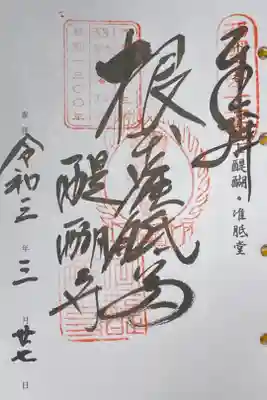 奉拝
醍醐・准胝堂
根本准胝尊
醍醐寺
令和三年三月廿七日
一三〇〇年